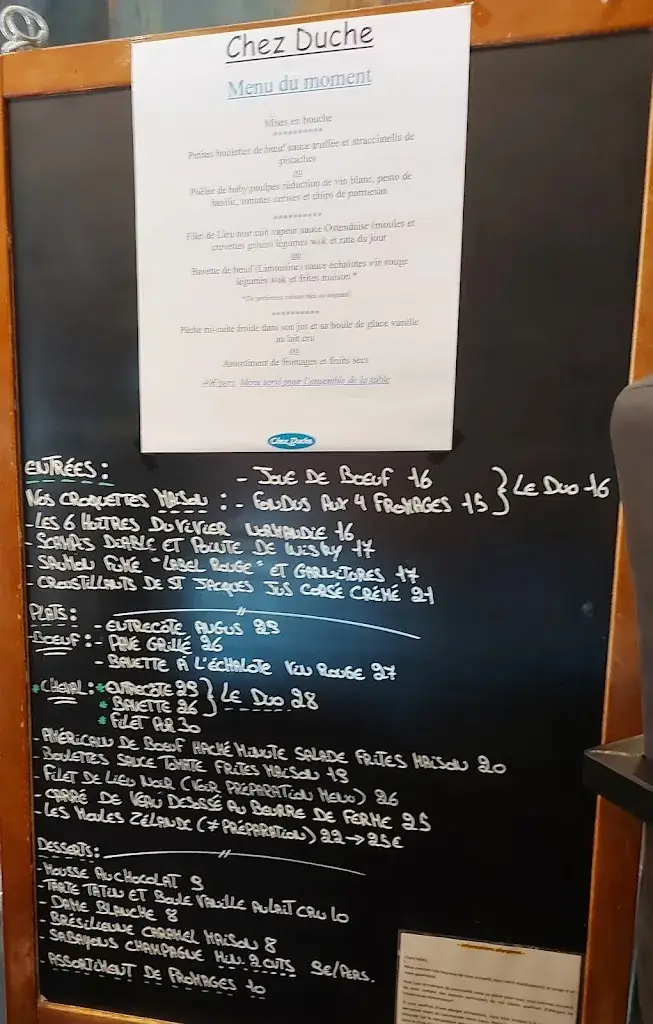 Chez Duche
Menu du moment
Mises en bouche
**********
Petites boulettes de bœuf sauce truffée et straccintelis de
pistaches
ou
Poêlée de baby poulpes réduction de vin blanc, pesto de
basilic, tomates cerises et chips de parmesan
**********
Filet de Lieu noir cuit vapeur sauce Ostendaise (moules et
crevettes grises) légumes wok et rata du jour
ou
Bavette de bœuf (Limousine) sauce échalotes vin rouge
légumes wok et frites maison *
**********
Pêche mi-cuite froide dans son jus et sa boule de glace vanille
au lait cru
ou
Assortiment de fromages et fruits secs
Menu servi pour l'ensemble de la table
Chez Duche
ENTRÉES :
- JOUE DE BOEUF 16
NOS CROQUETTES MAISON : - FONDUS AUX 4 FROMAGES 15 } LE DUO 16
- LES 6 HUÎTRES DU VIVIER NORMANDIE 16
- SCAMPIS DIABLE ET POINTE DE WISKY 17
- SAUMON FUMÉ "LABEL ROUGE" ET GARNITURES 17
- CROUSTILLANTS DE ST JACQUES JUS CORSÉ CRÉMÉ 21
PLATS :
- ENTRECÔTE ANGUS 29
- BOEUF : - PAVÉ GRILLÉ 26
- BAVETTE À L'ÉCHALOTE VIN ROUGE 27
* CHEVAL : * ENTRECÔTE 29 } LE DUO 28
* BAVETTE 26
* FILET PUR 30
- AMÉRICAIN DE BOEUF HACHÉ MINUTE SALADE FRITES MAISON 20
- BOULETTES SAUCE TOMATE FRITES MAISON 18
- FILET DE LIEU NOIR (VOIR PRÉPARATION MENU) 26
- CARRÉ DE VEAU DESOSSÉ AU BEURRE DE FERME 25
- LES MOULES ZÉLANDE (≠ PRÉPARATION) 22 → 25€
DESSERTS :
- MOUSSE AU CHOCOLAT 9
- TARTE TATIN ET BOULE VANILLE AU LAIT CRU 10
- DAME BLANCHE 8
- BRÉSILIENNE CARAMEL MAISON 8
- SABAYONS CHAMPAGNE MIN. 2 CVTS 9€/PERS.
- ASSORTIMENT DE FROMAGES 10